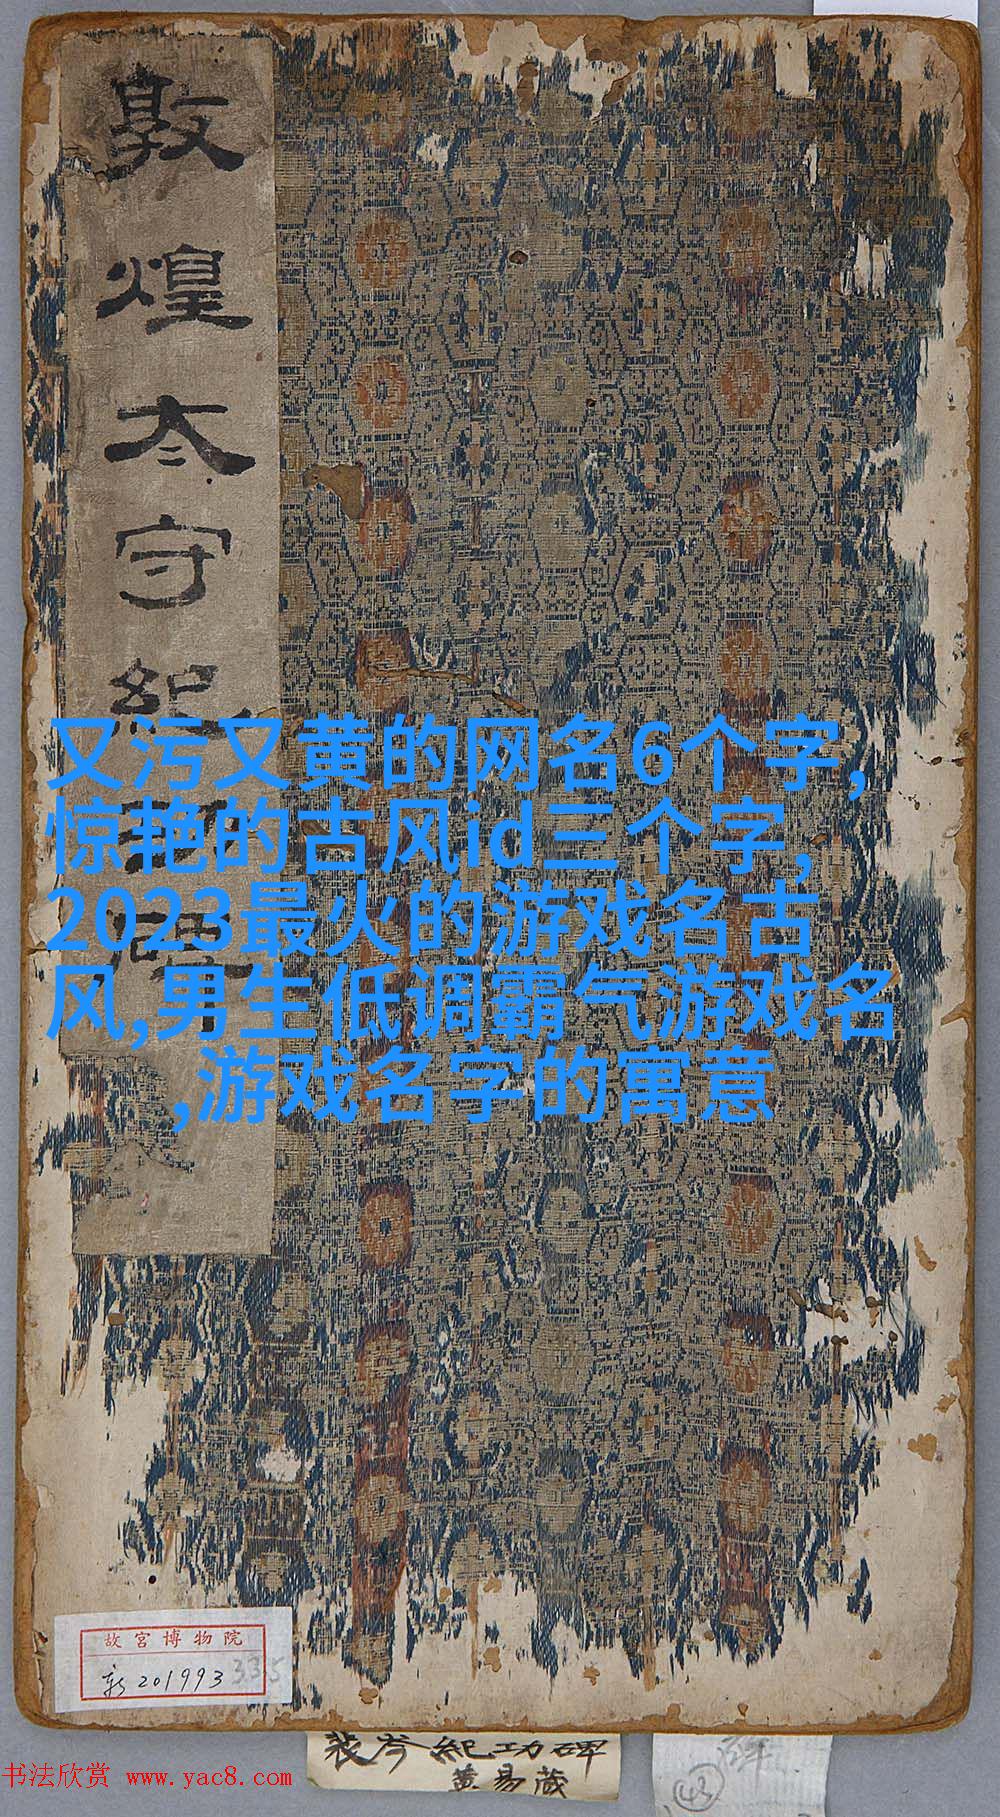 敦煌太守紀
又污又黄的网名6个字,
惊艳的古风id三个字,
2023最火的游戏名古
风,男生低调霸气游戏名
,游戏名字的寓意
故宫博物院
新201993
335
裴岑紀功碑
黄易藏
43
书法欣赏 www.yac8.com